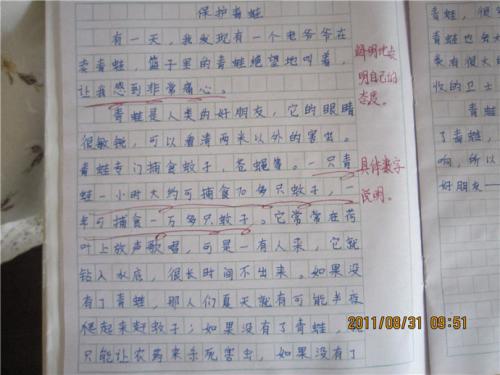 保护青蛙
有一天，我发现有一个老爷爷在
卖青蛙，笼子里的青蛙绝望地叫着，
让我感到非常痛心。
青蛙是人类的好朋友，它的眼睛
很敏锐，可以看清两米以外的害虫。
青蛙专门捕食蚊子，苍蝇等。一只青
蛙一小时大约可捕食70多只蚊子，一
年可捕食一万多只蚊子。它常常在荷
叶上放声歌唱，可是一有人来，它就
钻入水底，很长时间不出来。如果没
有了青蛙，那人们夏天就有可能半夜
爬起来赶蚊子；如果没有了青蛙，就
只能让农药来杀死害虫，如果没有了
鲜明地表
明自己的
态度。
具体数字
说明。
青蛙，很
青蛙也会大
来有很大的
收的卫士
青蛙
了青蛙，
响，所以
好朋友——
2011/08/31 09:51